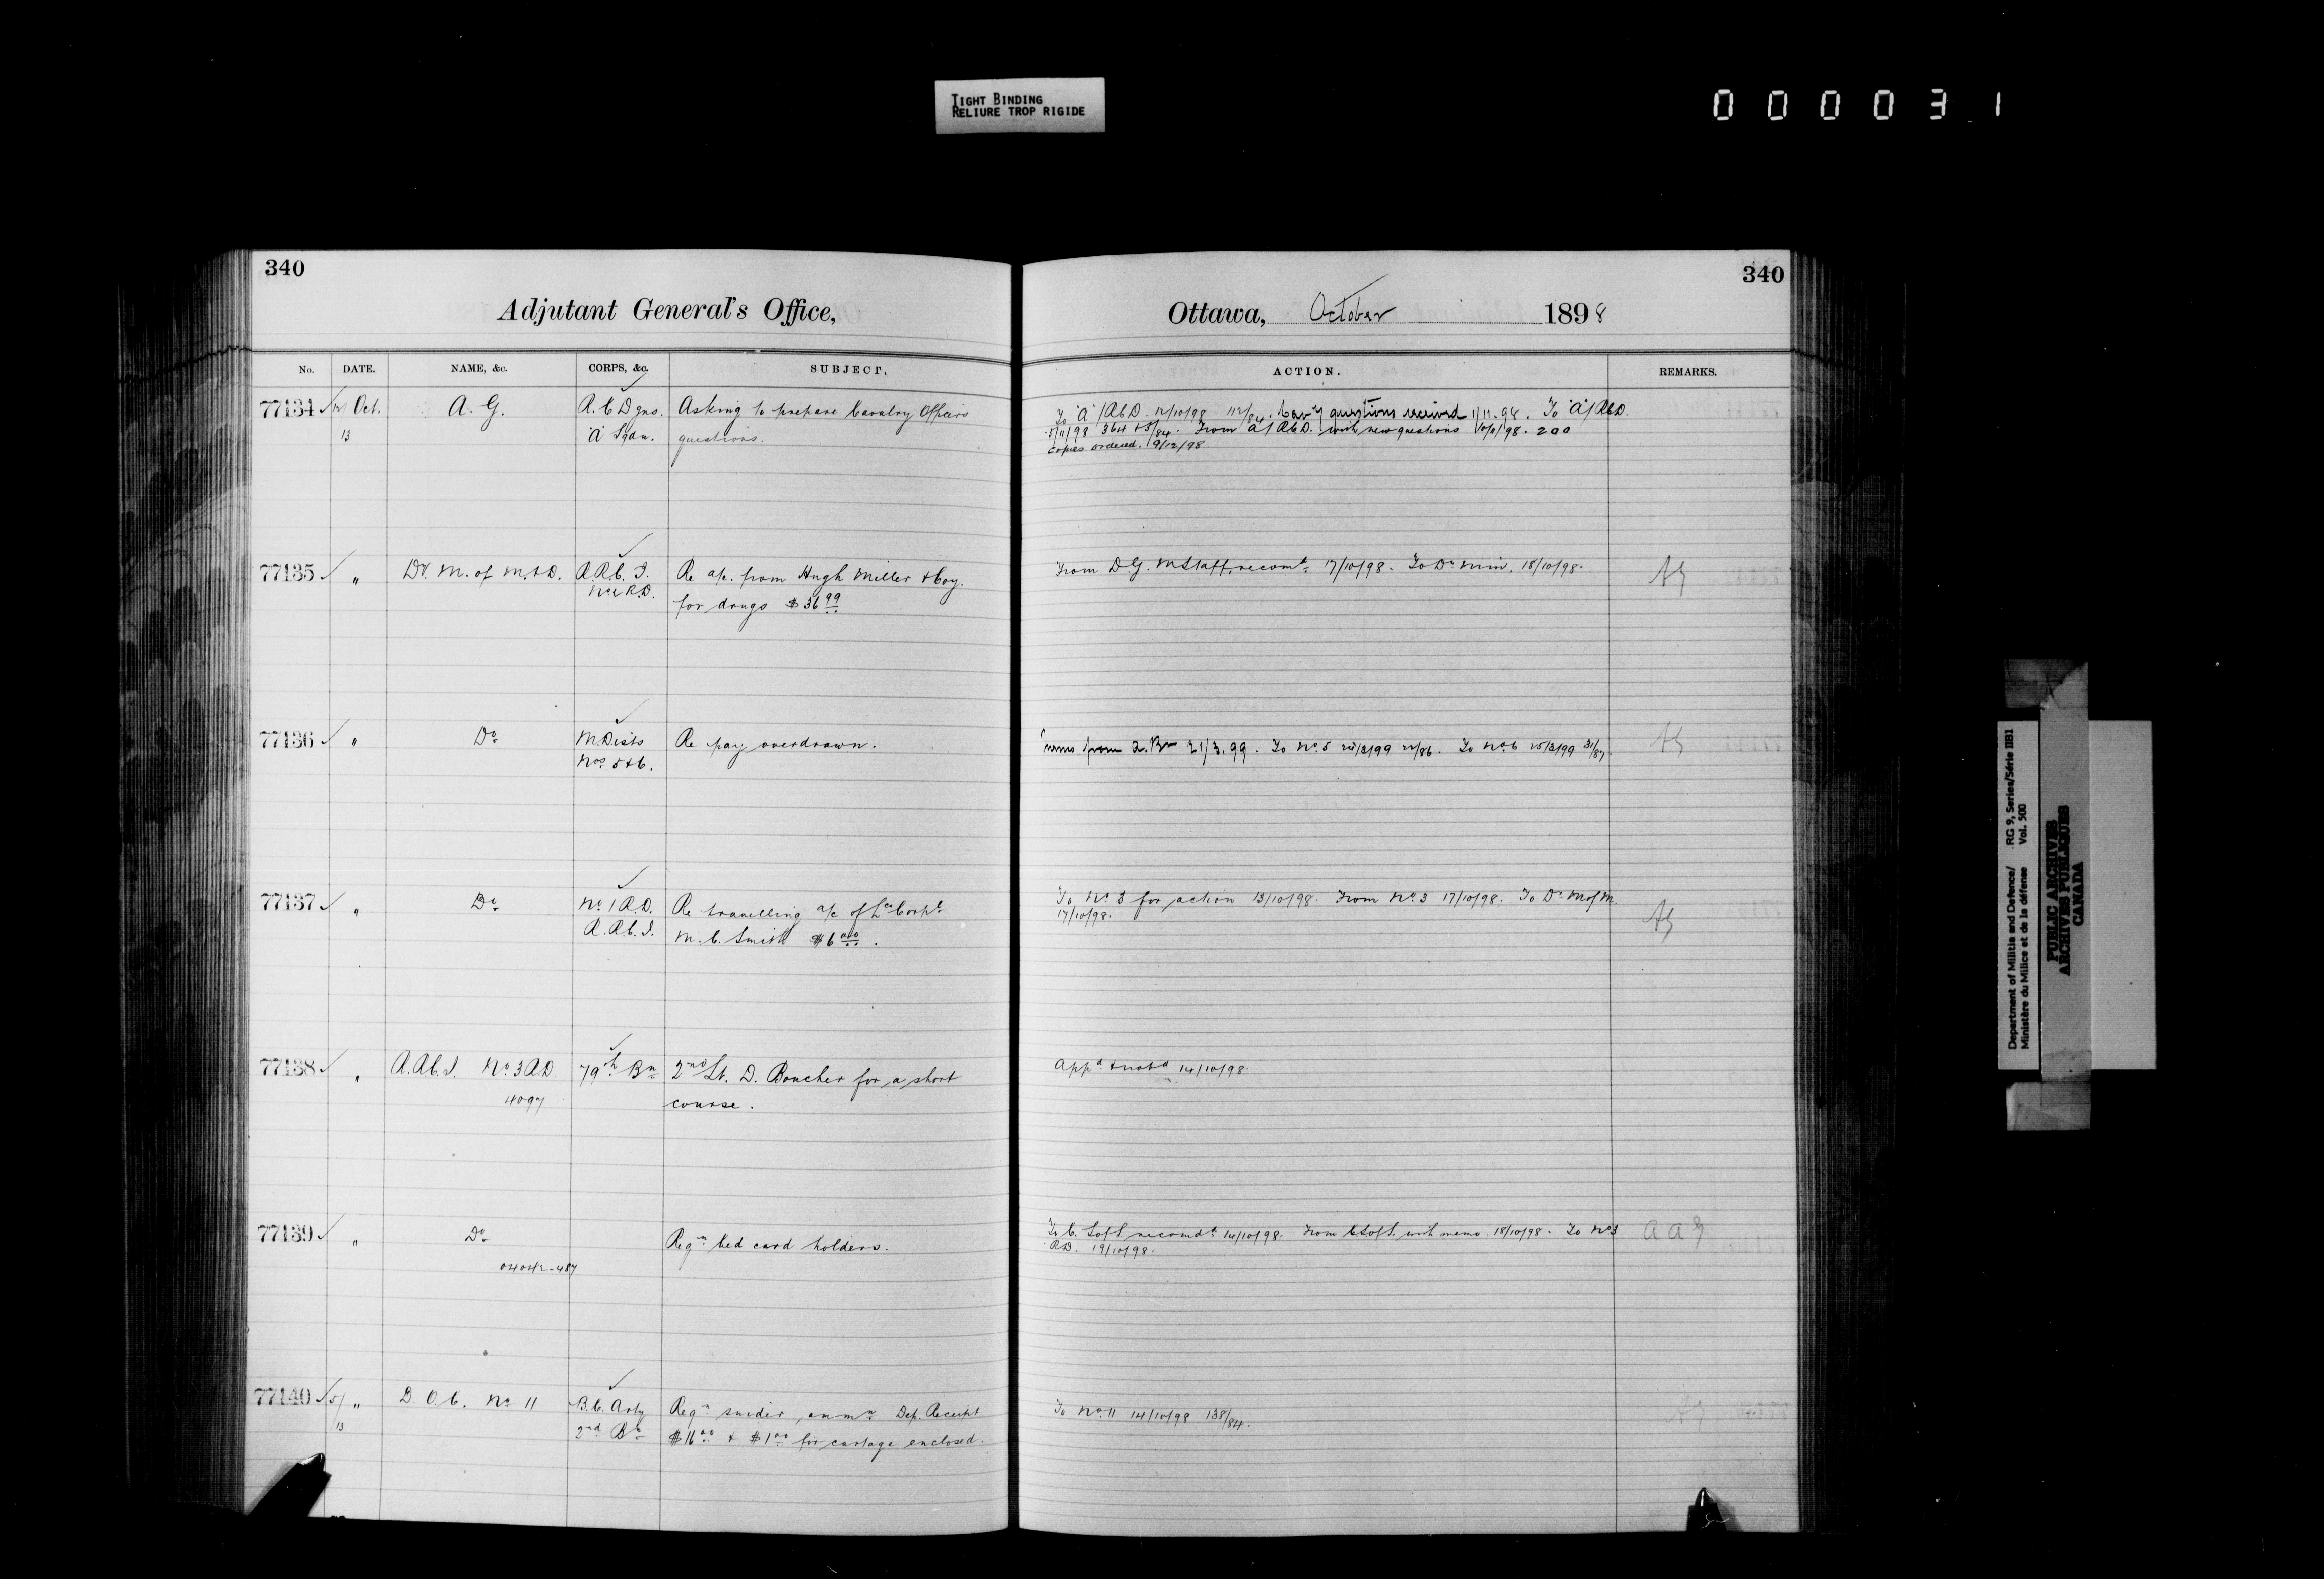 TIGHT BINDING
RELIURE TROP RIGIDE
000031
340
Adjutant General's Office,
No. DATE. NAME, &c. CORPS, &c. SUBJECT.
77134 Oct. A. G. R. C. Dgns. Asking to prepare Cavalry Officers
13 "A" Sqdn. questions.
77135 " Dy. M. of M. & D. R.R.C.I. Re a/c. from Hugh Miller & Coy.
No 2 R.D. for drugs $36.99
77136 " Do M. Dists Re pay overdrawn.
Nos 5 & 6.
77137 " Do No 1 R.D. Re travelling a/c of Lce Corpl.
R.R.C.I. M. C. Smith $6.00.
77138 " R.R.C.I. No 3 R.D 79th Bn 2nd Lt. D. Boucher for a short
4097 course.
77139 " Do Reqn bed card holders.
77140 " D.O.C. No 11 B.C. Arty Reqn snider ammn. Dep. Receipt
13 2nd Bn $16.00 & $1.00 for cartage enclosed.
340
Ottawa, October 1898
ACTION. REMARKS.
To "A" / R.C.D. 12/10/98 112/84. Cavy questions received 1/11.98. To "A"/ R.C.D.
5/11/98 364 + 5/84. From "A"/ R.C.D. with new questions /98. 200
copies ordered. 9/12/98
From D.G. M Staff, recomd. 17/10/98. To Dy Min. 18/10/98.
Memo from A. Br 21/3.99. To No 5 /3/99 /86. To No 6 25/3/99 31/87.
To No 3 for action 13/10/98. From No 3 17/10/98. To Dy M of M
17/10/98.
Appd & notd 14/10/98.
To C. Supt recomdd 14/10/98. From C Supt. with memo. 18/10/98. To No 3
R.D. 19/10/98.
To No 11 14/10/98 138/84.
Department of Militia and Defence/ RG 9, Series/Série IIB1
Ministère du Milice et de la défense Vol. 500
PUBLIC ARCHIVES
ARCHIVES PUBLIQUES
CANADA